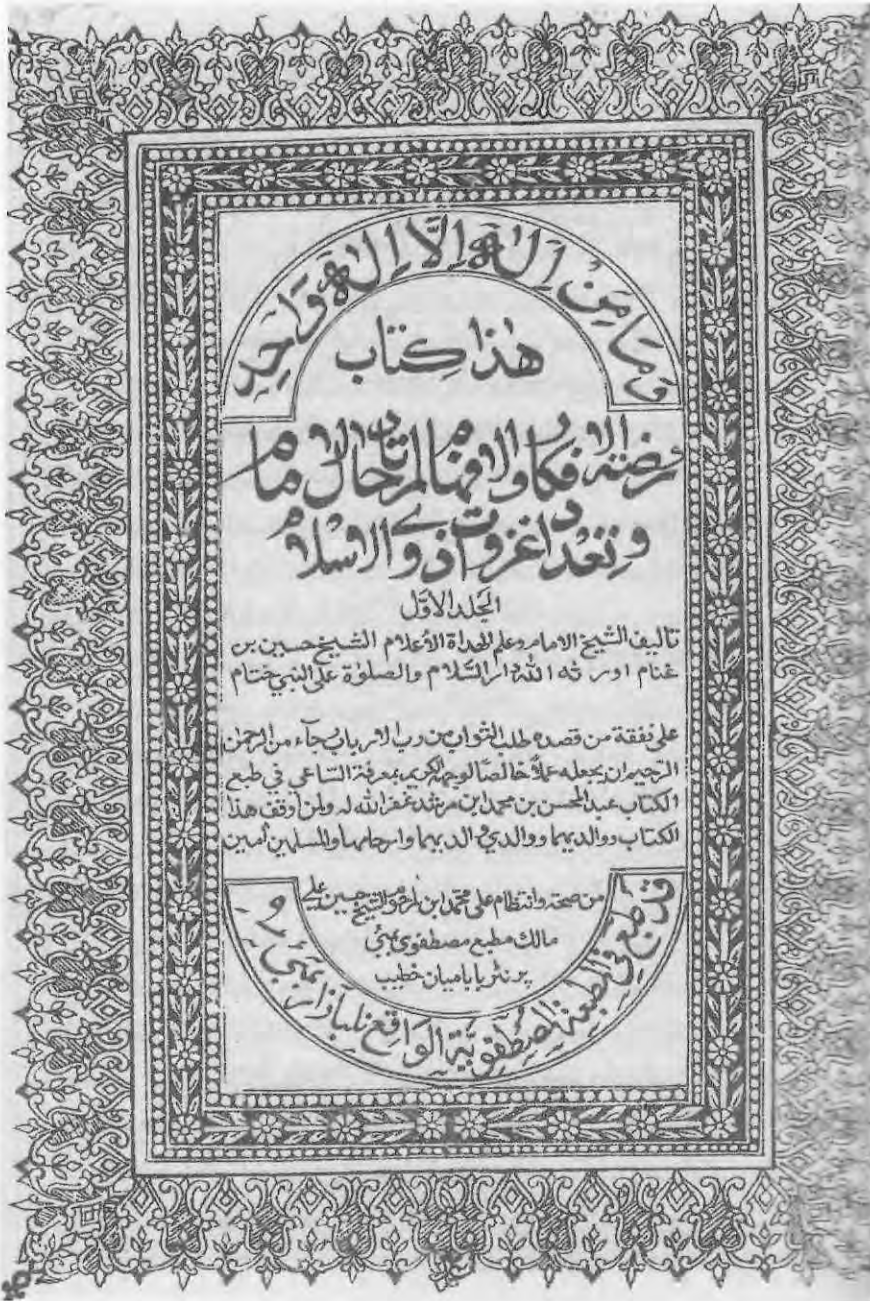 وَمَا مِنْ اِلٰهٍ اِلَّا اِلٰهٌ وَاحِدٌ
هٰذا كِتاب
روضة الافكار والافهام لمرتاد حال الامام
وتعداد غزوات ذوي الاسلام
الجلد الاوّل
تاليف الشيخ الامام وعلم الهداة الأعلام الشيخ حسين بن
غنام اورثه الله دار السّلام والصلوٰة على النبي ختام
على نفقة من قصده طلب الثواب من رب الارباب رجآء من الرحمٰن
الرحيم ان يجعله عملاً خالصاً لوجهه الكريم بمعرفة السّاعي في طبع
الكتاب عبد المحسن بن محمد ابن مرشد غفر الله له ولمن اوقف هذا
الكتاب ووالديهما ووالدي والديهما وارحامهما والمسلمين أمين
من صحته وانتظام على محمّد ابن لمرم والشيخ حسين علي
مالك مطبع مصطفوى بمبئ
پرنٹر باباميان خطيب
قد طبع في المطبعة المصطفوية الواقع نلبازار بمبئ